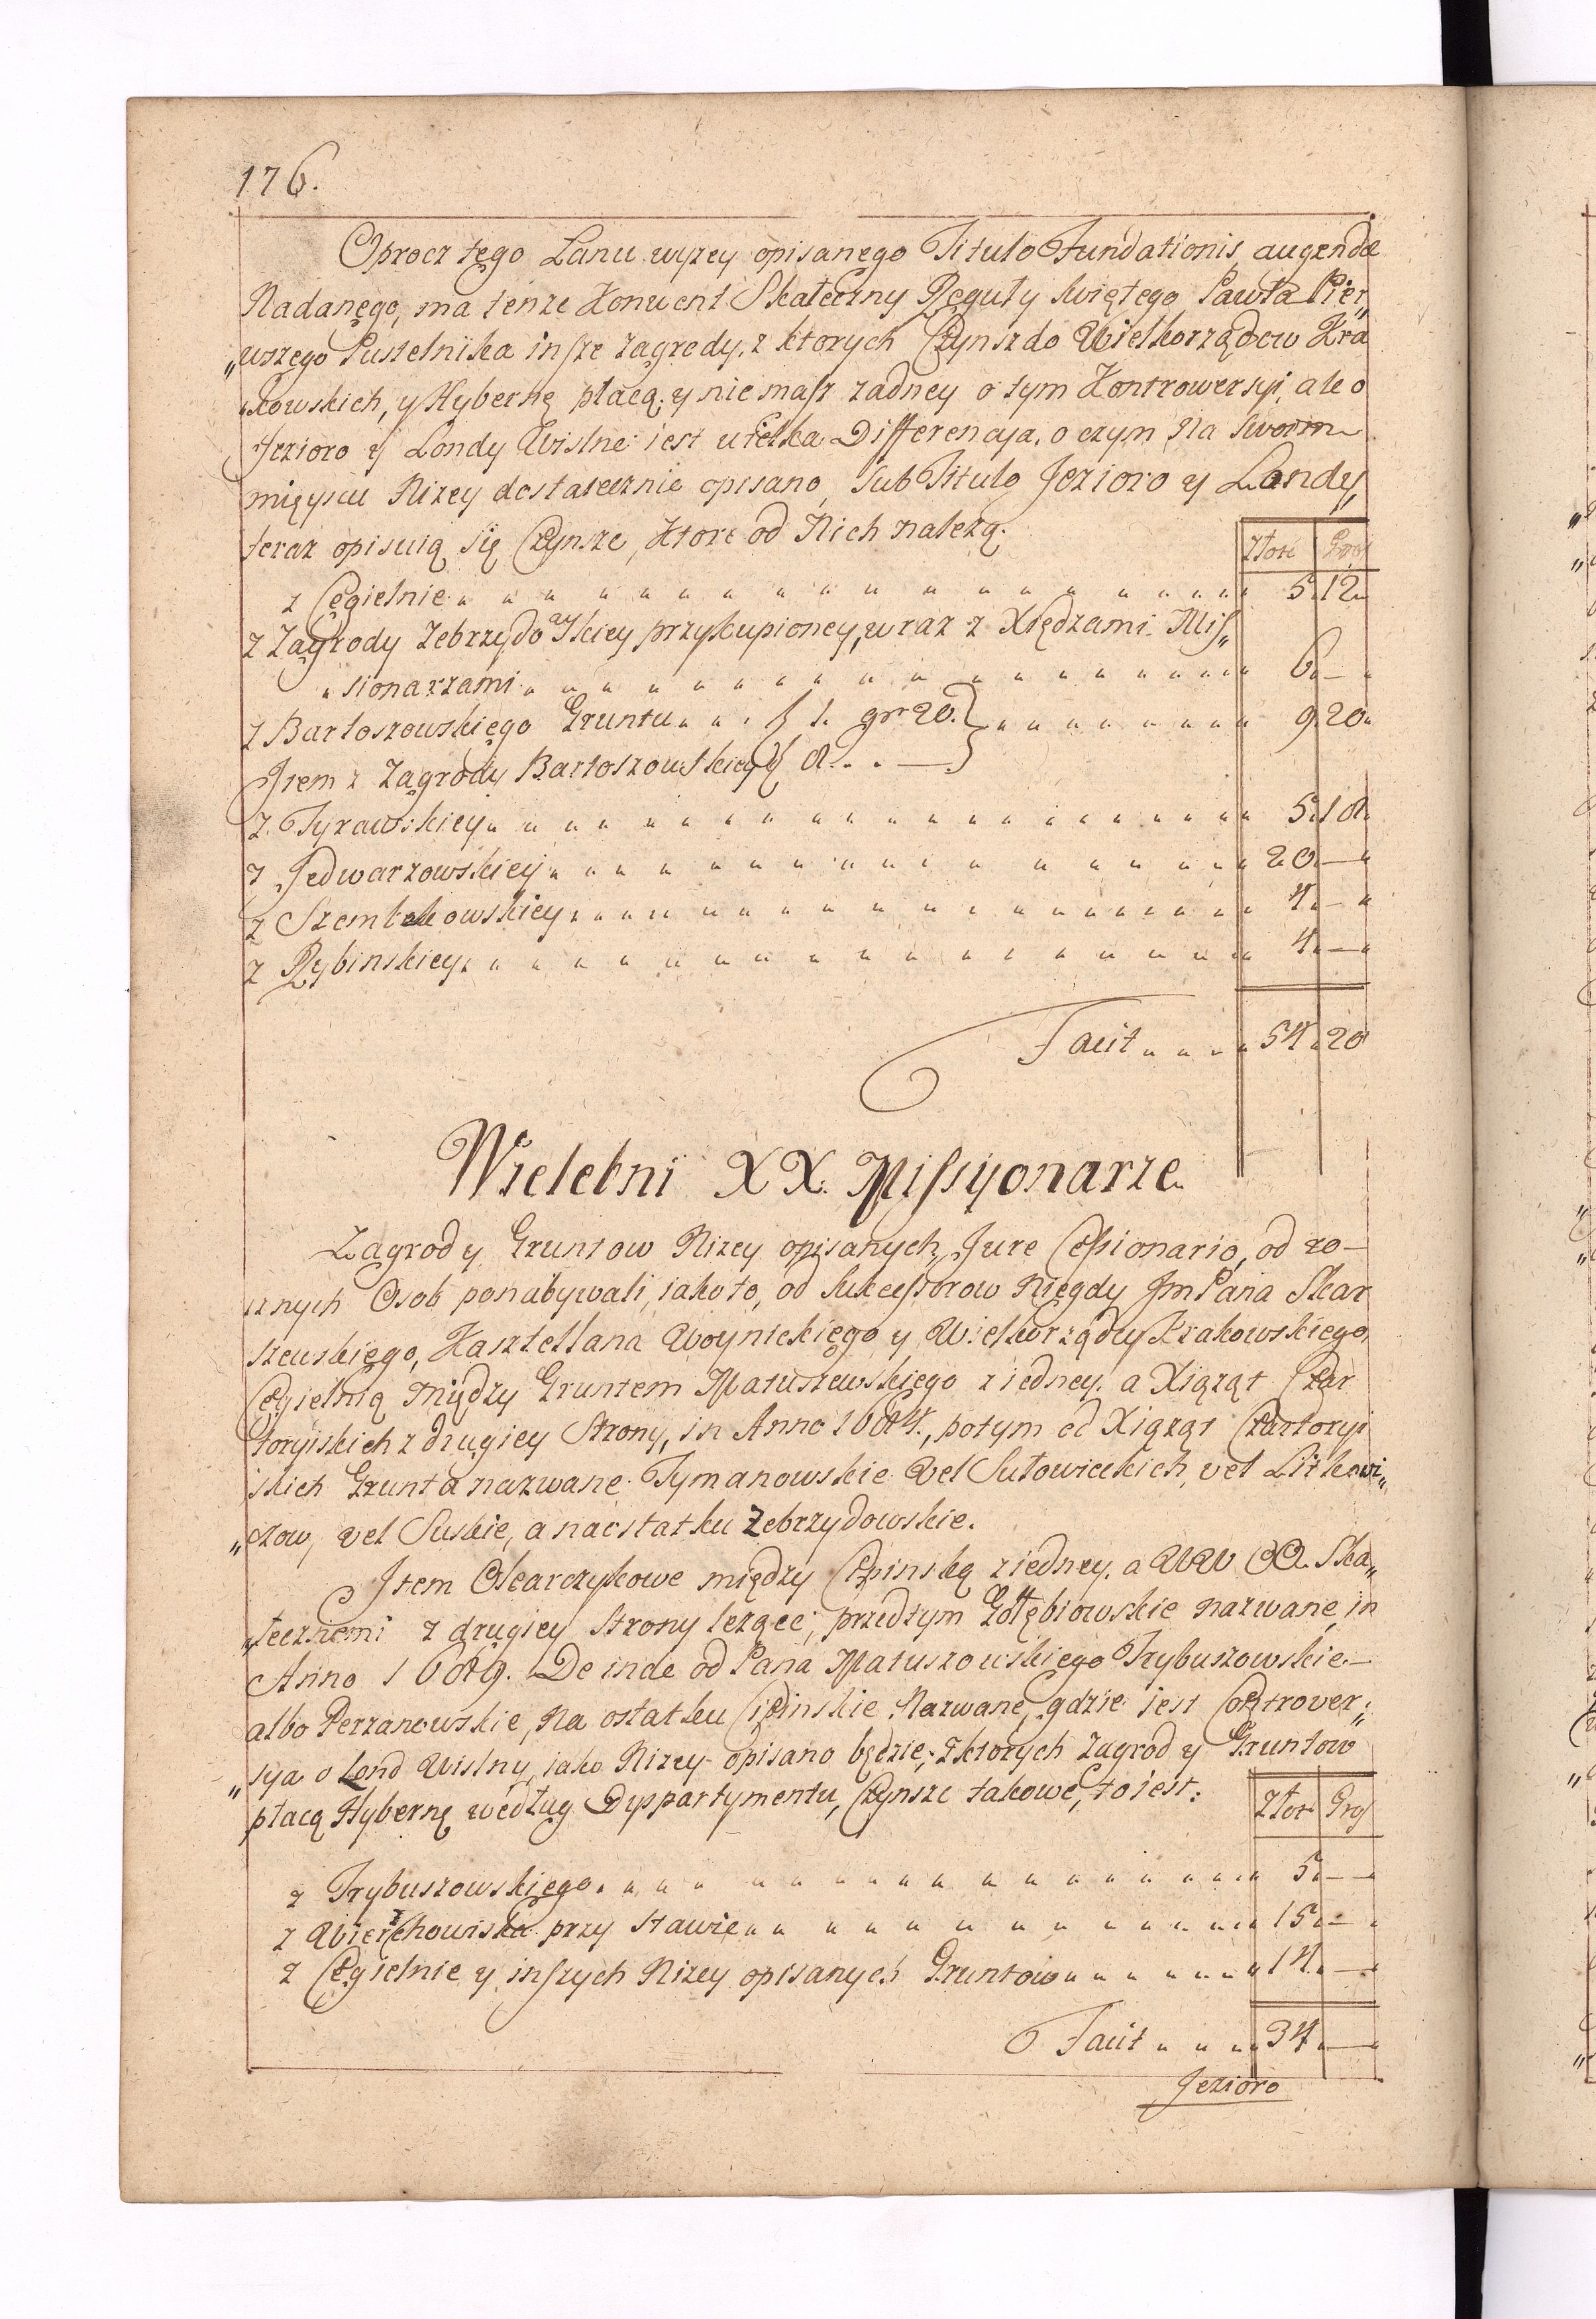 176.
Oprocz tego Łanu wyzey opisanego Titulo Fundationis augendæ
Nadanego, ma tenze Konwent Skałeczny Reguły Swiętego Pawła Pier„
„wszego Pustelnika insze Zagrody, z ktorych Czynsz do Wielkorządow Kra
„kowskich, y Hybernę płacą, y nie masz zadney o tym Kontrowersyi, ale o
Jezioro y Londy Wislne iest wielka Differencya, o czym Na Swoim
mięyscu Nizey dostatecznie opisano, Sub Titulo Jezioro y Londy,
teraz opisuią się Czynsze, Ktore od Nich należą.
Złote Gros
z Cegielnie 5. 12.
Z Zagrody Zebrzydowskiey przykupioney, wraz z Xiędzami Mis„
„sionarzami 6. —
Z Bartoszowskiego Gruntu f 1. gr 20. } 9. 20.
Item z Zagrody Bartoszowskiey f 8. . —. }
Z Tyrawskiey 5. 18.
z Jedwarzowskiey 20. —
z Szembekowskiey 4. —
z Rybinskiey 4. —
Facit 54. 20
Wielebni XX. Missyonarze
Zagrod y Gruntow Nizey opisanych, Jure Cessionario, od ro—
znych Osob ponabywali, iako to, od Sukcessorow Niegdy Jm Pana Skar
szewskiego, Kasztellana Woynickiego y Wielkorządcy Krakowskiego,
Cegielnią między Gruntem Matuszewskiego z iedney, a Xiążąt Czar
toryiskich z drugiey Strony, in Anno 1684., potym od Xiążąt Czartoryi
skich Grunta nazwane Tymanowskie vel Sułowieckich, vel Litkowi„
„czow, vel Suskie, a na ostatku Zebrzydowskie.
Item Olearczykowe między Cepinską z iedney, a WW OO. Ska„
„łecznemi z drugiey Strony lezące, przedtym Gołębiowskie nazwane, in
Anno 1689. De inde od Pana Matuszowskiego Trybuszowskie—
albo Perzanowskie, Na ostatku Cipinskie Nazwane, gdzie iest Controver„
„sya o Lond Wislny, iako Nizey opisano będzie; z ktorych Zagrod y Gruntow
płacą Hybernę według Dyspartymentu, Czynsze takowe, to iest:
Złote Gros
z Trybuszowskiego 5. —
z Wierzchowiska przy Stawie 15. —
z Cegielnie y inszych Nizey opisanych Gruntow 14. —
Facit 34. —
Jezioro